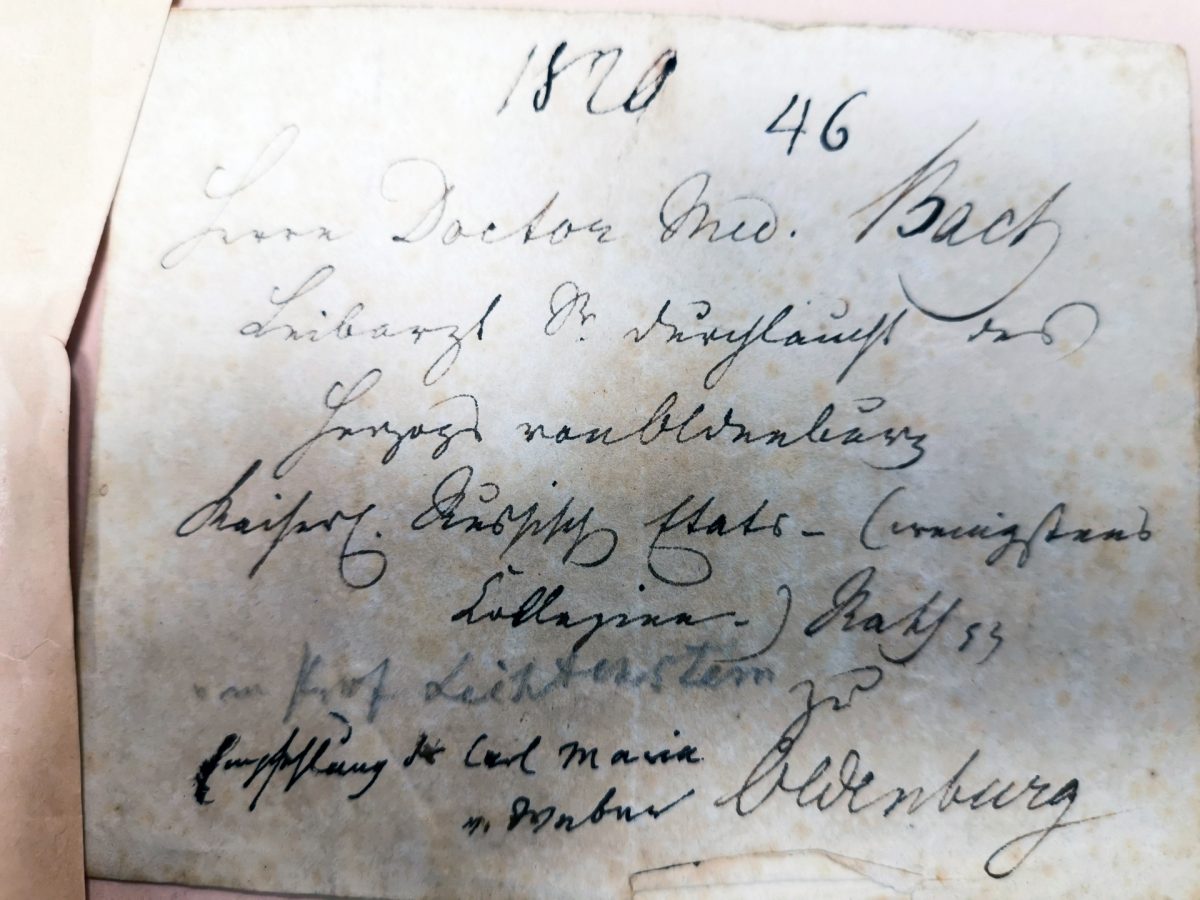 1820
46
Herrn Doctor Med. Bach
Leibarzt Sr. Durchlaucht des
Herzogs von Oldenburg
Kaiserl. Russisch Etats- (wenigstens
Collegien-) Rath
Prof Lichtenstein
zu
Empfehlung des Carl Maria
v. Weber
Oldenburg